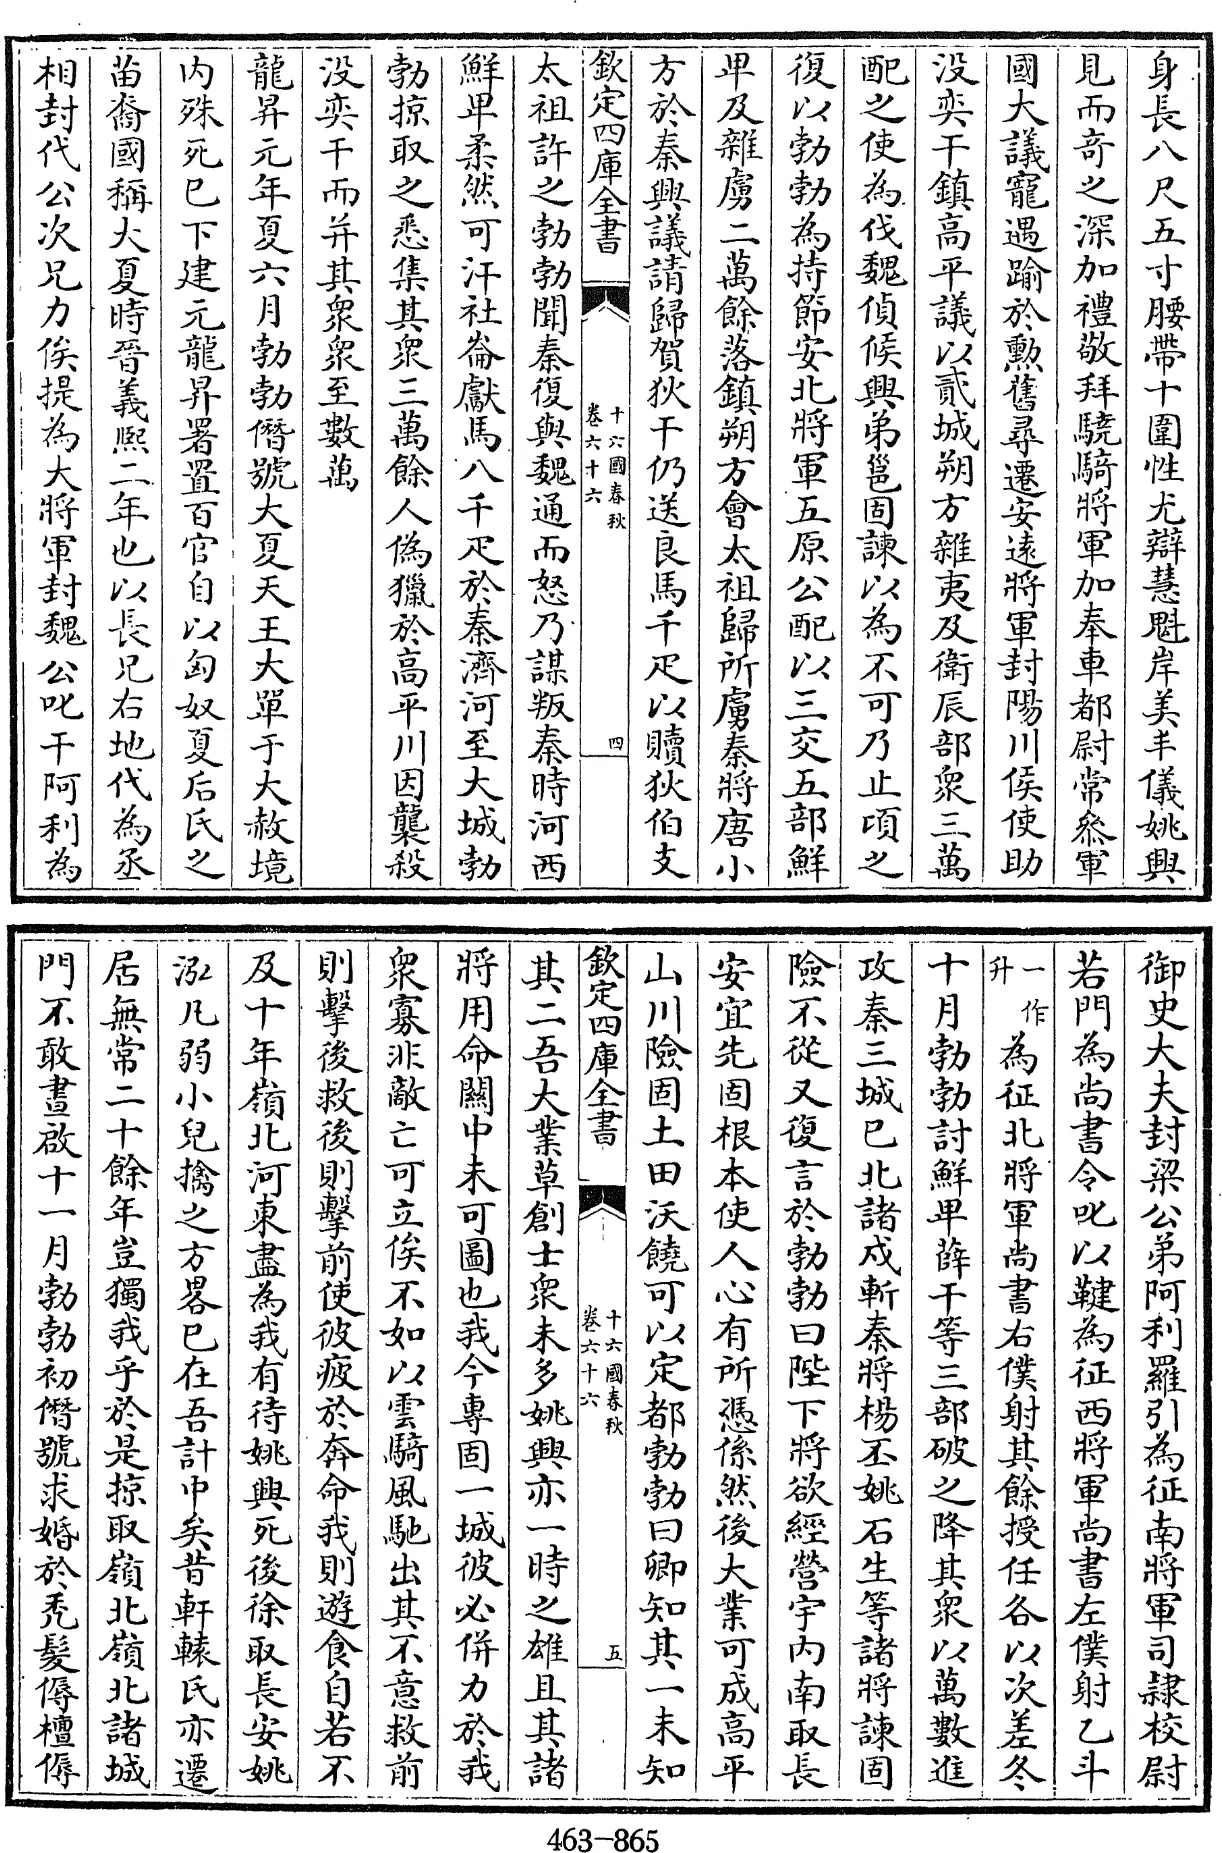 身長八尺五寸腰帶十圍性尤辯慧魁岸美丰儀姚興
見而奇之深加禮敬拜驍騎將軍加奉車都尉常叅軍
國大議寵遇踰於勲舊尋遷安遠將軍封陽川侯使助
没奕干鎮高平議以貳城朔方雜夷及衛辰部衆三萬
配之使為伐魏偵候興弟邕固諫以為不可乃止頃之
復以勃勃為持節安北將軍五原公配以三交五部鮮
卑及雜虜二萬餘落鎮朔方會太祖歸所虜秦將唐小
方於秦興議請歸賀狄干仍送良馬千疋以贖狄伯支
欽定四庫全書
十六國春秋
卷六十六
四
太祖許之勃勃聞秦復與魏通而怒乃謀叛秦時河西
鮮卑柔然可汗社崙獻馬八千疋於秦濟河至大城勃
勃掠取之悉集其衆三萬餘人偽獵於高平川因襲殺
没奕干而并其衆衆至數萬
龍昇元年夏六月勃勃僭號大夏天王大單于大赦境
内殊死已下建元龍昇署置百官自以匈奴夏后氏之
苗裔國稱大夏時晉義熙二年也以長兄右地代為丞
相封代公次兄力俟提為大將軍封魏公叱干阿利為
御史大夫封梁公弟阿利羅引為征南將軍司隷校尉
若門為尚書令叱以鞬為征西將軍尚書左僕射乙斗
一作升為征北將軍尚書右僕射其餘授任各以次差冬
十月勃勃討鮮卑薛干等三部破之降其衆以萬數進
攻秦三城已北諸戍斬秦將楊丕姚石生等諸將諫固
險不從又復言於勃勃曰陛下將欲經營宇内南取長
安宜先固根本使人心有所憑係然後大業可成高平
山川險固土田沃饒可以定都勃勃曰卿知其一未知
欽定四庫全書
十六國春秋
卷六十六
五
其二吾大業草創士衆未多姚興亦一時之雄且其諸
將用命關中未可圖也我今專固一城彼必併力於我
衆寡非敵亡可立俟不如以雲騎風馳出其不意救前
則擊後救後則擊前使彼疲於奔命我則遊食自若不
及十年嶺北河東盡為我有待姚興死後徐取長安姚
泓凡弱小兒擒之方畧已在吾計中矣昔軒轅氏亦遷
居無常二十餘年豈獨我乎於是掠取嶺北嶺北諸城
門不敢晝啟十一月勃勃初僭號求婚於秃髮傉檀傉
463-865